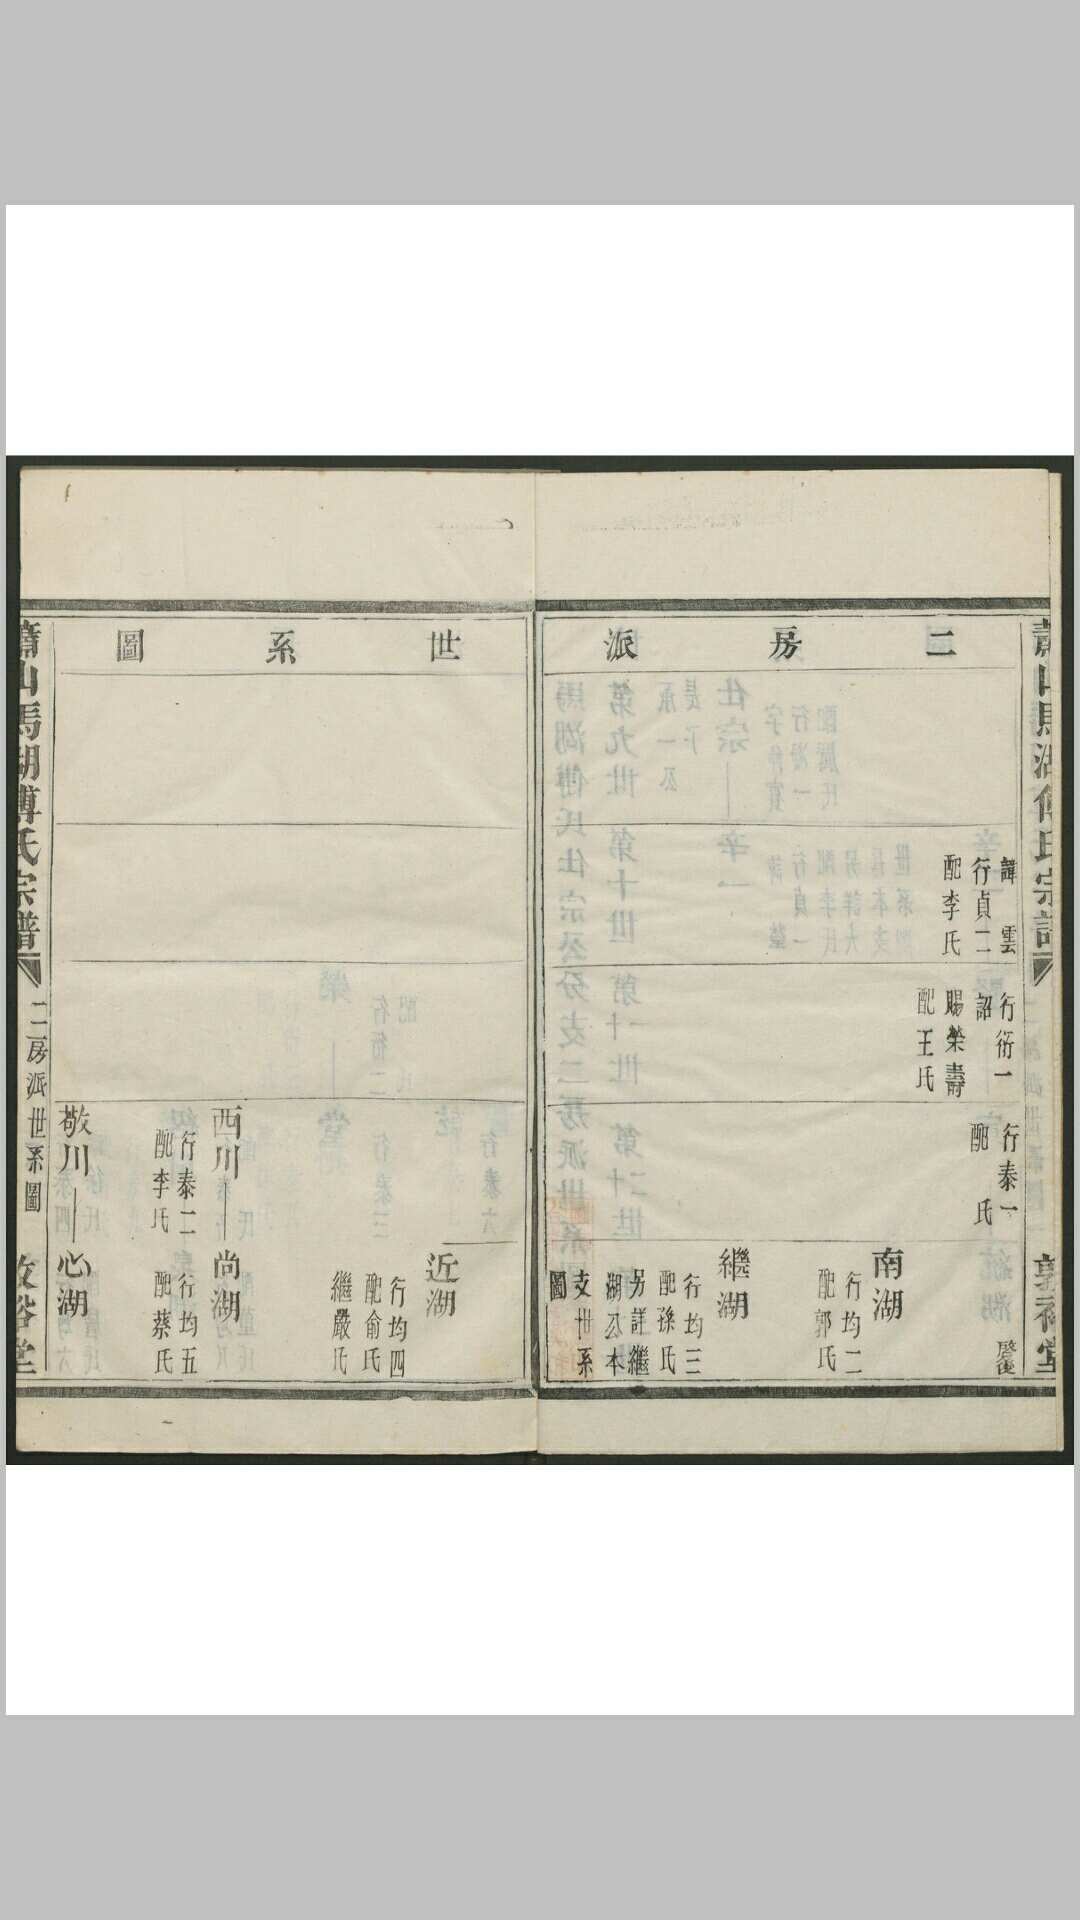 蕭山馬湖傅氏宗譜
敦裕堂
二房派
諱雲
行貞二
配李氏
行衍一
詔
賜榮壽
配王氏
行泰一
配 氏
啓後
南湖
行均二
配郭氏
繼湖
行均三
配孫氏
另詳繼
湖公本
支世系
圖
世系圖
近湖
行均四
配俞氏
繼嚴氏
西川—尚湖
行泰二
配李氏
行均五
配蔡氏
敬川—心湖
蕭山馬湖傅氏宗譜
二房派世系圖
敦裕堂